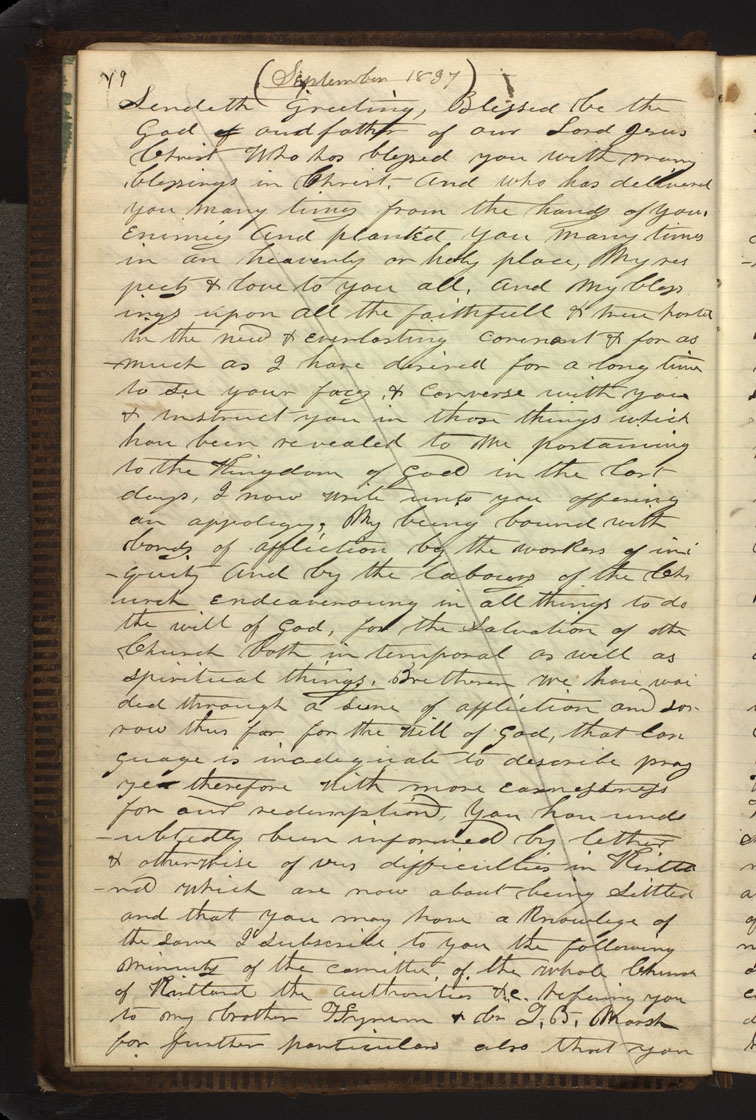 19 (September 1837)
Sendeth Greeting, Blessed be the
God of and father of our Lord Jesus
Christ Who has blessed you with many
blessings in Christ, And who has delivered
you many times from the hands of your
Enemies And planted you many times
in an heavenly or holy place, My res
pects & love to you all, And My bless
ings upon all the faithfull & true hearted
in the new & everlasting covenant & for as
-much as I have desired for a long time
to see your faces, & converse with you
& instruct you in those things which
have been revealed to me pertaining
to the Kingdom of God in the last
days, I now write unto you offering
an appology, My being bound with
bonds of affliction by the workers of ini
-quity And by the labours of the Ch
urch endeavouring in all things to do
the will of God, for the salvation of the
Church both in temporal as well as
spiritual things. Bretheren we have wai
ded through a scene of affliction and sor-
row thus far for the will of God, that lan
guage is inadequate to describe pray
ye therefore with more earnestness
for our redemption, You have undo
-ubtedly been informed by letter
& otherwise of our difficulties in Kirtla
-nd which are now about being settled
and that you may have a knowledge of
the same I subscribe to you the following
minutes of the comittee, of the whole Church
of Kirtland the authorities &c. refering you
to my brother Hyrum & br T. B. Marsh
for further particulars also that you